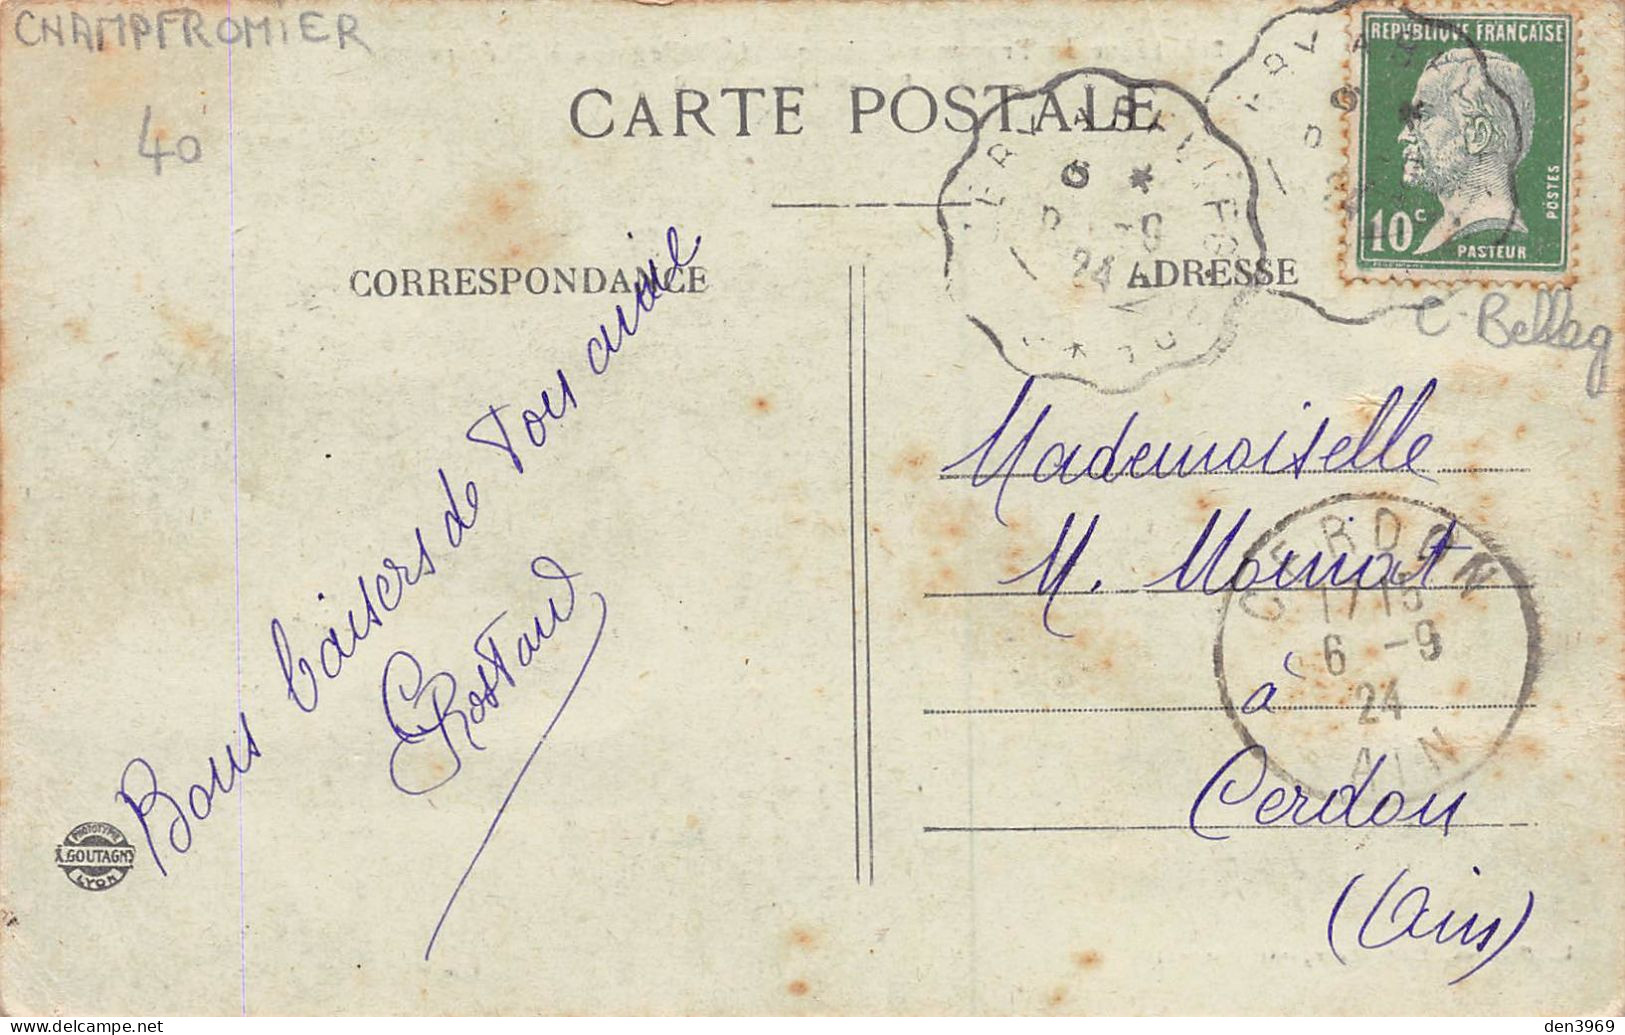 CHAMPFROMIER
40
CARTE POSTALE
REPVBLIQVE FRANÇAISE
10c
POSTES
PASTEUR
24
C Belleg
CORRESPONDANCE
ADRESSE
Bons baisers de ton amie
Mademoiselle
M.
à
Cerdon
(Ain)
CERDON
17 15
6 -9
24
AIN
PHOTOTYPIE
GOUTAGNY
LYON
den3969